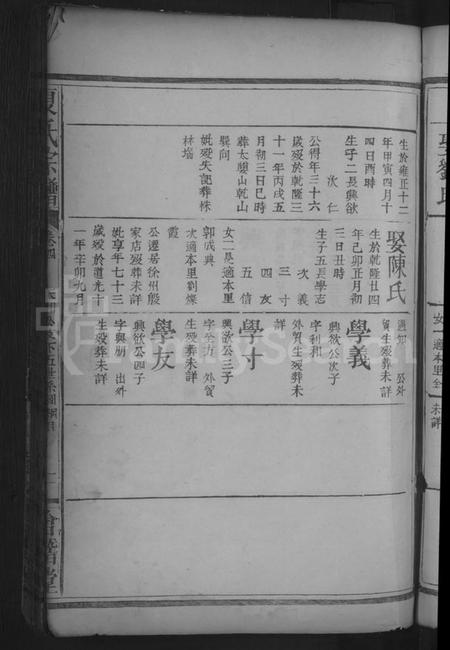 生於雍正十二
年甲寅四月十
四日酉時
生子二長興欲
次仁
公得年三十六
歲歿於乾隆三
十一年丙戌五
月初三日巳時
葬太嬰山乾山
巽向
妣歿失記葬株
林塢
娶陳氏
生於乾隆廿四
年己卯正月初
三日丑時
生子五長學志
次義
三寸
四友
五信
女二長適本里
郭成典
次適本里劉燦
霞
公遷居徐州殷
家店歿葬未詳
妣享年七十三
歲歿於道光十
一年辛卯九月
通知 公外
貿生歿葬未詳
學義
興欲公次子
字利和
外貿生歿葬未
詳
學寸
興欲公三子
字全方 外貿
生歿葬未詳
學友
興欲公四子
字與朋 出外
生歿葬未詳
氏宗譜
卷四
五世系圖
會稽堂
娶劉氏
女一適本里余
未詳